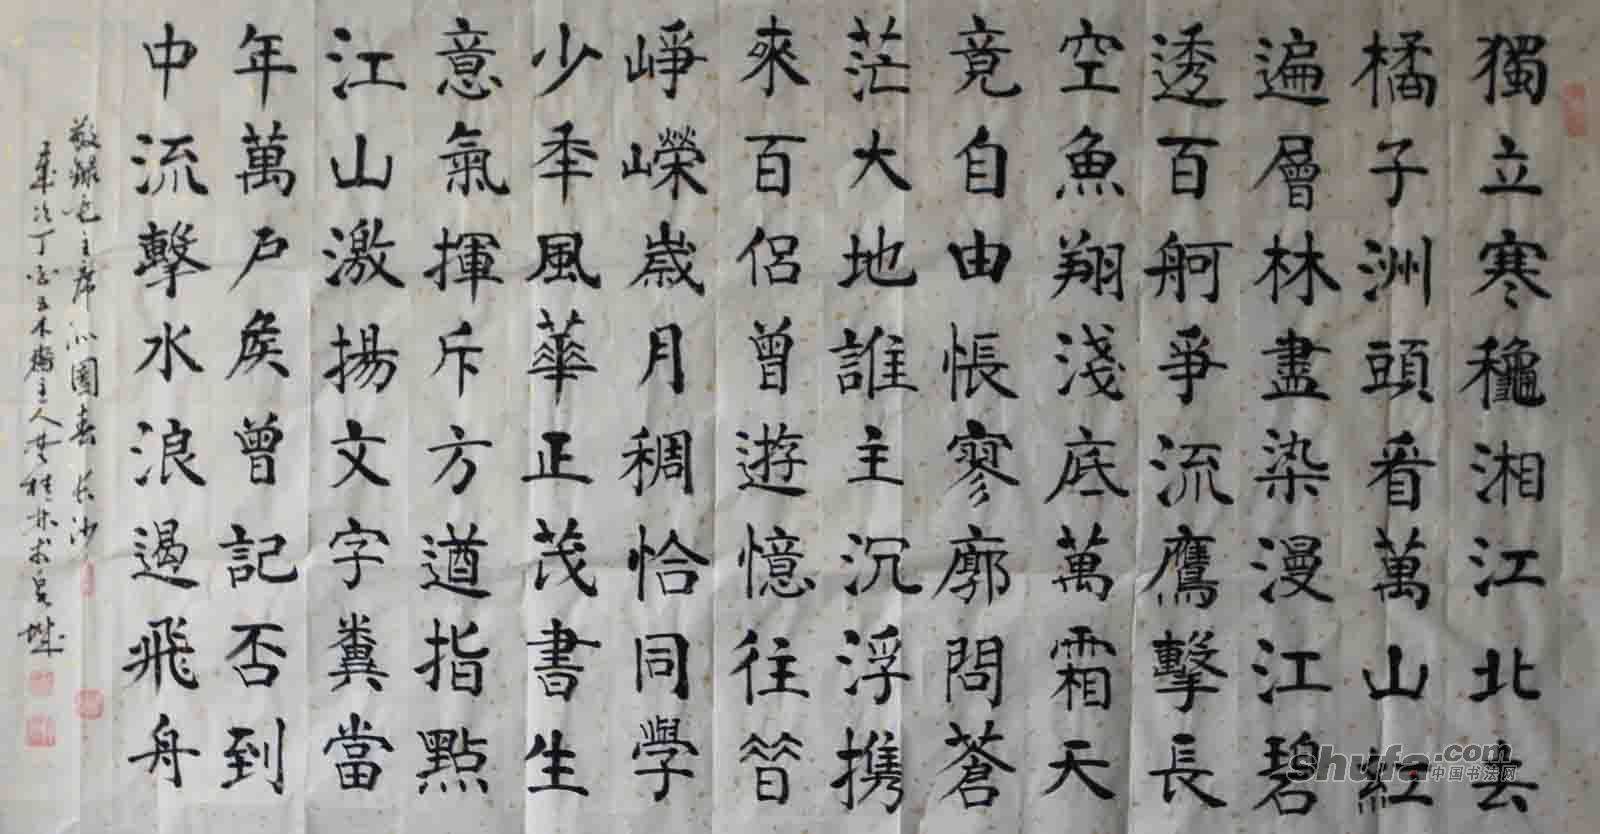 獨立寒穐湘江北去
橘子洲頭看萬山紅
遍層林盡染漫江碧
透百舸爭流鷹擊長
空魚翔淺底萬霜天
竟自由悵寥廓問蒼
茫大地誰主沉浮携
來百侶曾遊憶往昔
崢嶸歲月稠恰同學
少秊風華正茂書生
意氣揮斥方遒指點
江山激揚文字糞當
年萬戶矦曾記否到
中流擊水浪遏飛舟
敬錄毛主席沁園春長沙
歲次丁酉 主人 桂林
shufa.com
中国书法网